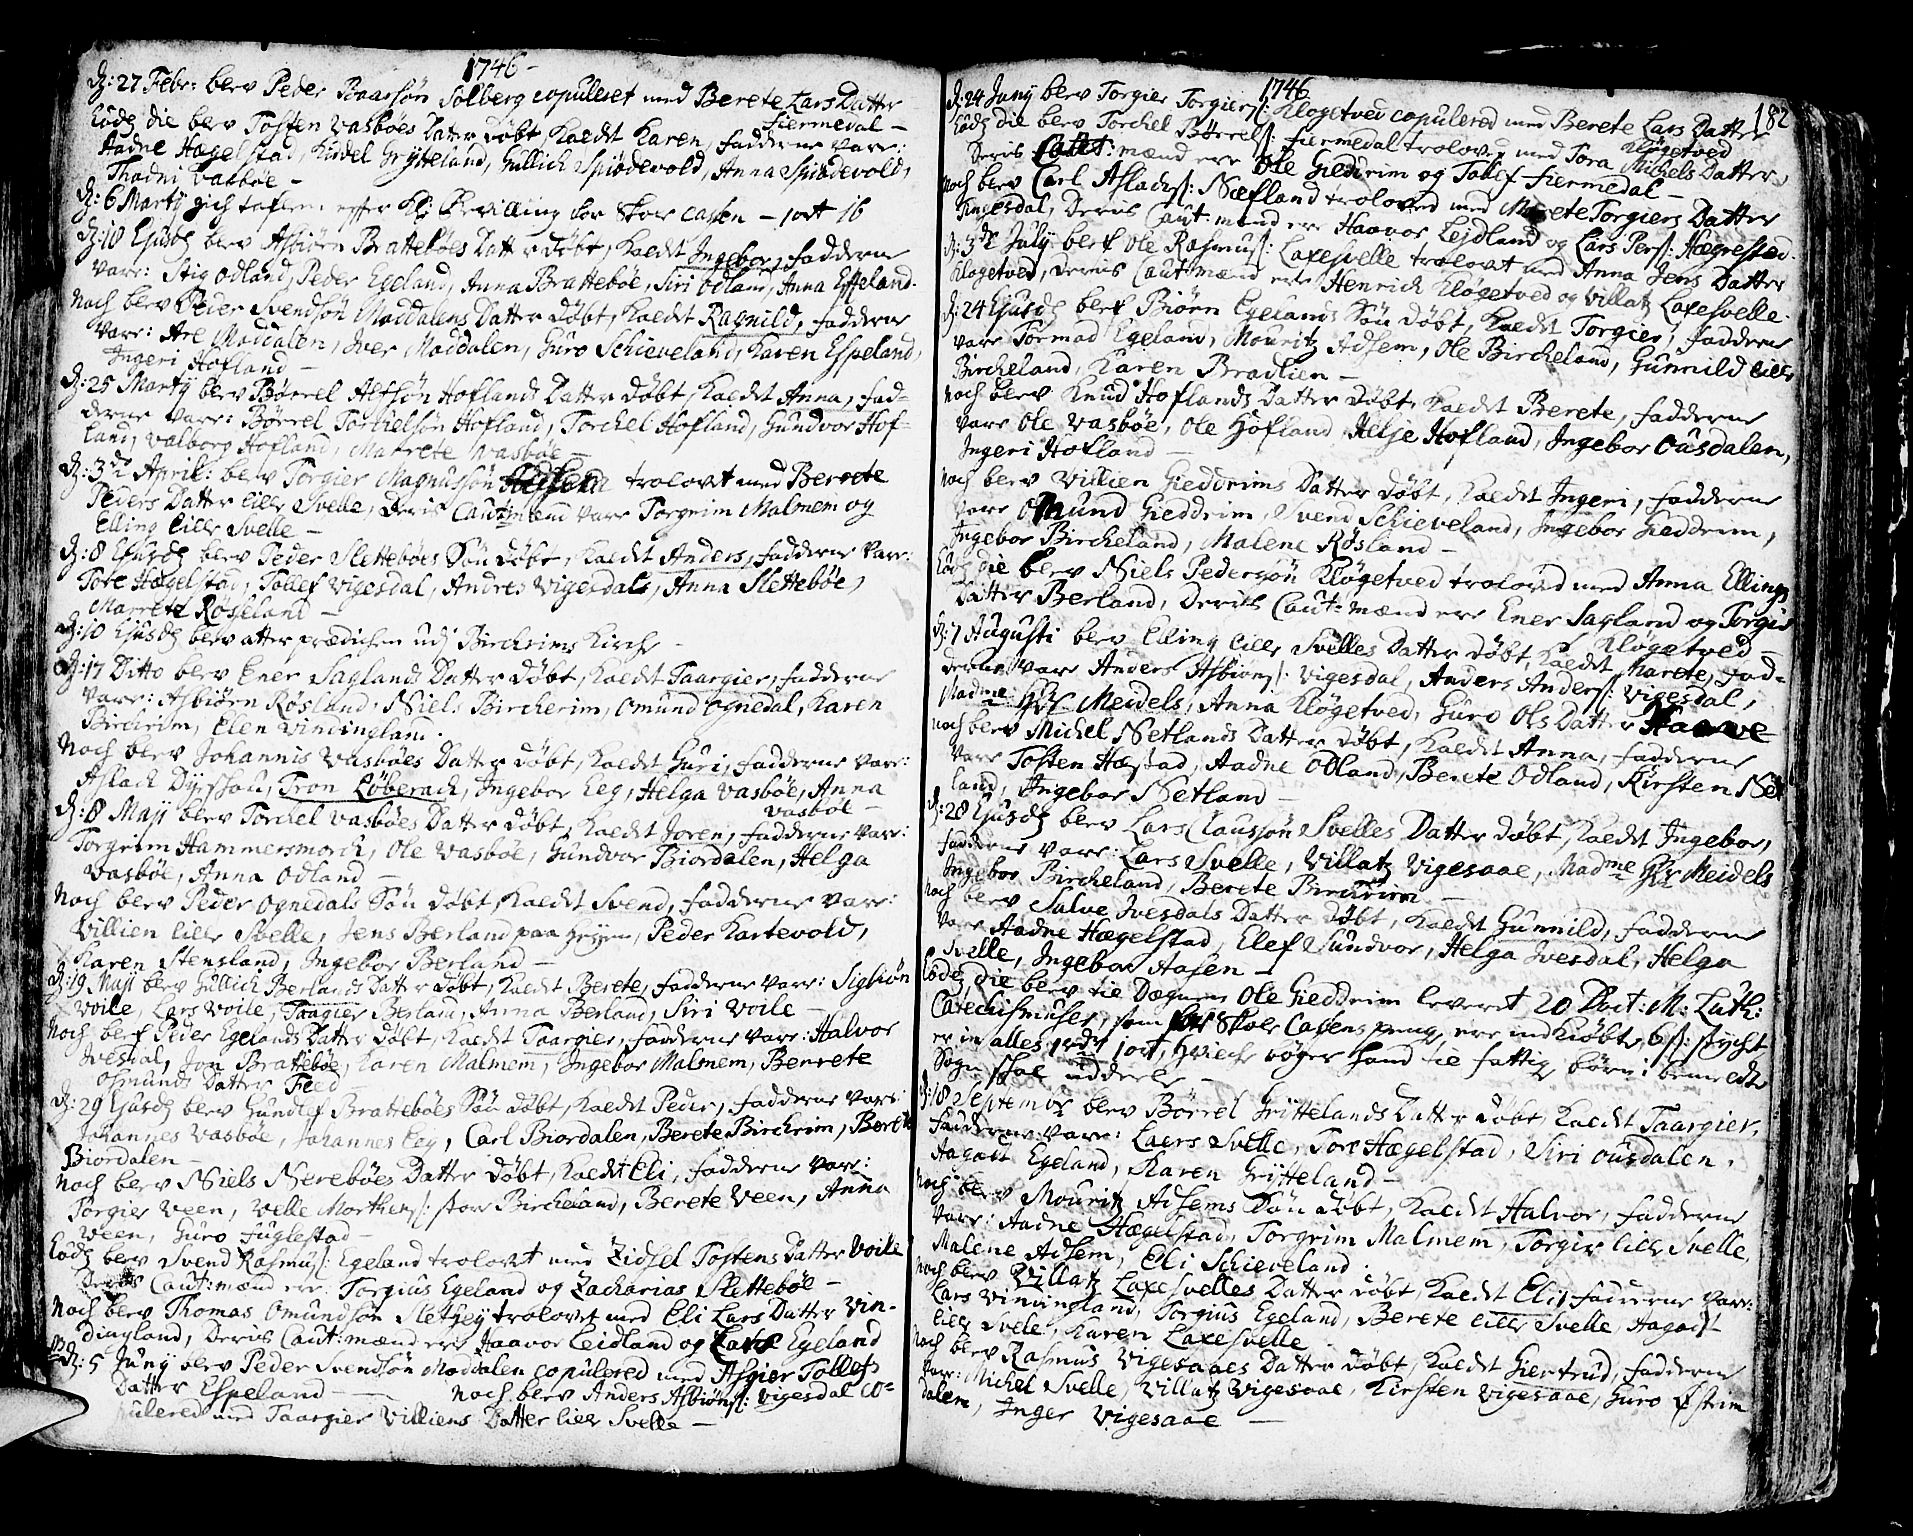 1746 -
d: 27 Febr: blev Peder Baarsøn Solberg copuleret med Berete Lars Datter
Fiermedal -
Eod: die blev Tosten Vasbøes Datter døbt, kaldt Karen, fadderne vare:
Aadne Hægelstad, Kiddel Grytteland, Gullich Spiødevold, Anna Spiødevold,
Thadni Vasbøe -
d: 6 Marty gich taflen efter Kl: Bevilling for Skole Cassen - 1 ort 16
d: 18 Ejusd blev Asbiørn Brattebøes Datter døbt, kaldt Ingebor, fadderne
vare: Stig Odland, Peder Egeland, Anna Brattebøe, Siri Odland, Anna Espeland.
Noch blev Peder Svendsøn Moddalens Datter døbt, kaldt Ragnild, fadderne
vare: Are Moddalen, Iver Moddalen, Guro Schieveland, Karen Espeland,
Ingeri Hofland -
d: 25 Marty blev Børrel Alfsøn Hoflands Datter døbt, kaldt Anna, fad-
derne vare: Børrel Torkielsøn Hofland, Torchel Hofland, Gundvor Hof-
land, Valborg Hofland, Marrete Vasbøe -
d: 3de April: blev Torgier Magnussøn trolovt med Berrete
Peders Datter lille Svelle, Deris Cautmænd vare Torgrim Malmem og
Elling lille Svelle -
d: 8 Ejusd blev Peder Slettebøes Søn døbt, kaldt Anders, fadderne vare:
Tore Hægelstad, Tollef Vigesdal, Andres Vigesdal, Anna Slettebøe,
Marrete Røseland -
d: 10 Ejusd blev atter prædichen udj Birchrims Kirche -
d: 17 Ditto blev Ener Saglands Datter døbt, kaldt Taargier, fadderne
vare: Asbiørn Røsland, Niels Bircherim, Omund Ognedal, Karen
Birchrim, Elen Vindingland.
Noch blev Johannis Vasbøes Datter døbt, kaldt Guri, fadderne vare:
Aslach Dyrskou, Tron Løberach, Ingebor Eeg, Helga Vasbøe, Anna
Vasbøe -
d: 8 Maji blev Torchel Vasbøes Datter døbt, kaldt Joren, fadderne vare:
Torgrim Hammersmorch, Ole Vasbøe, Gundvor Biordalen, Helga
Vasbøe, Anna Odland -
Noch blev Peder Ognedals Søn døbt, kaldt Svend, fadderne vare:
Villien lille Svelle, Jens Berland paa Heyen, Peder Kartevold,
Karen Stensland, Ingebor Berland -
d: 19 Maji blev Gullich Berlands Datter døbt, kaldt Berete, fadderne vare: Sigbiørn
Voile, Lars Voile, Taagier Berland, Anna Berland, Siri Voile -
Noch blef Peder Egelands Datter døbt, kaldt Taargier, fadderne vare: Halvor
Ivesdal, Jon Brattebøe, Karen Malmem, Ingebor Malmem, Berrete
Osmunds Datter Feed -
d: 29 Ejusd blev Gundlef Brattebøes Søn døbt, kaldt Peder, fadderne vare
Johannes Vasbøe, Johannes Eeg, Carl Biordalen, Berete Birchrim, Berete
Biordalen -
Noch blev Niels Nerebøes Datter døbt, kaldt Eli, fadderne vare:
Torgier Veen, Velle Morthens: store Bircheland, Berete Veen, Anna
Veen, Guro Fuglestad -
Eod: blev Svend Rasmus: Egeland trolovt med Zidsel Tostens Datter Voile
Deris Caut: mænd ere Torgius Egeland og Zacharias Slettebøe -
Noch blev Thomas Omundsøn Slethey trolovet med Eli Lars Datter Vin-
dingland, Deris Caut: mænd ere Haavor Leidland og Lars Egeland
d: 5 Juny blev Peder Svendsøn Moddalen copulered med Asgier Tollefs
Datter Espeland - Noch blev Anders Asbiøns: Vigesdal co-
pulered med Taargier Villiens Datter lille Svelle -
1746
182
d: 24 Juny blev Torgier Torgiers: Kløgetved copulered med Berete Lars Datter
Kløgetved
Eod: die blev Torchel Børrels: Fiermedal trolovet med Tora Michels Datter,
Deris Caut: mænd ere Ole Gieddrim og Tollef Fiermedal -
Noch blev Carl Aslachs: Nesland trolovet med Marete Torgiers Datter
Tingesdal, Deris Caut: mænd ere Haavor Lejdland og Lars Pers: Hægrestad.
d: 3de July blef Ole Rasmus: Laxesvelle trolovt med Anna Jens Datter
Kløgetved, Deris Caut: mænd ere Henrich Kløgetved og Villatz Laxesvelle.
d: 24 Ejusd blef Biørn Egelands Søn døbt, kaldt Torgier, fadderne
vare Tormod Egeland, Mouritz Adsem, Ole Bircheland, Gunnild lille
Bircheland, Karen Bradlien -
Noch blev Knud Hoflands Datter døbt, kaldt Berete, fadderne
vare Ole Vasbøe, Ole Hofland, Altje Hofland, Ingebor Ousdalen,
Ingeri Hofland -
Noch blev Villien Gieddrims Datter døbt, kaldt Ingeri, fadderne
vare Omund Gieddrim, Svend Schieveland, Ingebor Gieddrim,
Ingebor Bircheland, Malene Røsland -
Eod: die blev Niels Pedersøn Kløgetved trolovet med Anna Ellings
Datter Berland, Deris Caut: mænd ere Ener Sagland og Torgier
Kløgetved -
d: 7 Augusti blev Elling lille Svelles Datter døbt, kaldt Marete, fad-
derne vare Anders Asbiøns: Vigesdal, Anders Anders: Vigesdal,
Madme: Meidels, Anna Kløgetved, Guro Ols Datter Haave
Noch blev Michel Netlands Datter døbt, kaldt Anna, fadderne
vare Tosten Hæstad, Aadne Odland, Berete Odland, Kirsten Net
land, Ingebor Netland -
d: 28 Ejusd blev Lars Claussøn Svelles Datter døbt, kaldt Ingebor,
fadderne vare: Lars Svelle, Villatz Vigesaae, Madme Meidels
Ingebor Bircheland, Berete Birchrim -
Noch blev Salve Ivesdals Datter døbt, kaldt Gunnild, fadderne
vare Aadne Hægelstad, Elef Sundvor, Helga Ivesdal, Helga
Svelle, Ingebor Aasen -
Eod: die blev til Degnen Ole Gieddrim leveret 20 Doct: M: Luth:
Catechismuser, som for Skole Cassens penge ere indkiøbte, 6 s: stycht
er in alles 1 rdr 1 ort, hvilche bøger hand til fattige børn i bemeldte
Sogn skal uddeele -
d: 18 Septembr blev Børrel Grittelands Datter døbt, kaldt Taargier,
fadderne vare: Laers Svelle, Tore Hægelstad, Siri Ousdalen,
Aagaat Egeland, Karen Grytteland -
Noch blev Mouritz Adsems Søn døbt, kaldt Halvor, fadderne
vare: Aadne Hægelstad, Torgrim Malmem, Torgir lille Svelle,
Malene Adsem, Eli Schieveland.
Noch blev Villatz Laxesvelles Datter døbt, kaldt Eli, fadderne vare:
Lars Vindingland, Torgius Egeland, Berete lille Svelle, Aagaat
lille Svele, Karen Laxesvelle -
Noch blev Rasmus Vigesaaes Datter døbt, kaldt Giertrud, fadderne
vare: Michel Svelle, Villatz Vigesaae, Kirsten Vigesaae, Guro Østrim
dalen, Inger Vigesaae -